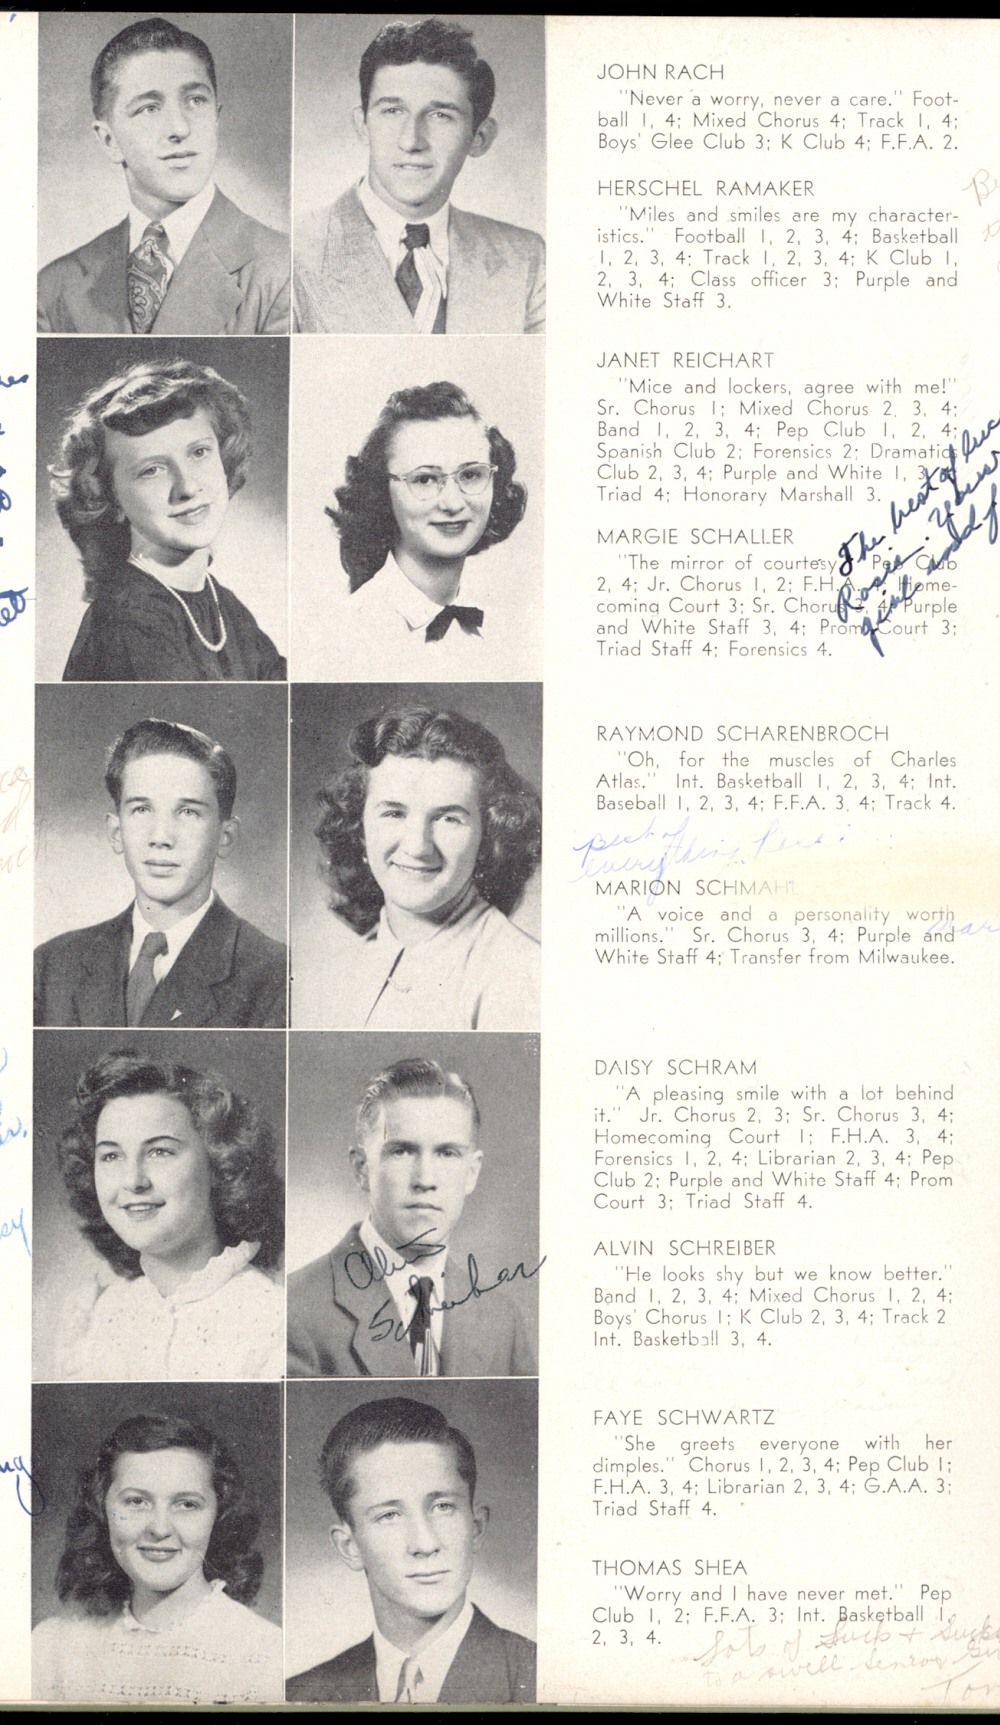 JOHN RACH
"Never a worry, never a care." Foot-
ball 1, 4; Mixed Chorus 4; Track 1, 4;
Boys' Glee Club 3; K Club 4; F.F.A. 2.
HERSCHEL RAMAKER
"Miles and smiles are my character-
istics." Football 1, 2, 3, 4; Basketball
1, 2, 3, 4; Track 1, 2, 3, 4; K Club 1,
2, 3, 4; Class officer 3; Purple and
White Staff 3.
JANET REICHART
"Mice and lockers, agree with me!"
Sr. Chorus 1; Mixed Chorus 2, 3, 4;
Band 1, 2, 3, 4; Pep Club 1, 2, 4;
Spanish Club 2; Forensics 2; Dramatic
Club 2, 3, 4; Purple and White 1, 3,
Triad 4; Honorary Marshall 3.
The best of luc
Rosie. Your
girl and f
MARGIE SCHALLER
"The mirror of courtesy Pep Club
2, 4; Jr. Chorus 1, 2; F.H.A. Home-
coming Court 3; Sr. Chorus 3, 4; Purple
and White Staff 3, 4; Prom Court 3;
Triad Staff 4; Forensics 4.
RAYMOND SCHARENBROCH
"Oh, for the muscles of Charles
Atlas." Int. Basketball 1, 2, 3, 4; Int.
Baseball 1, 2, 3, 4; F.F.A. 3, 4; Track 4.
Best of
everything
MARION SCHMAHL
"A voice and a personality worth
millions." Sr. Chorus 3, 4; Purple and
White Staff 4; Transfer from Milwaukee.
Mar
DAISY SCHRAM
"A pleasing smile with a lot behind
it." Jr. Chorus 2, 3; Sr. Chorus 3, 4;
Homecoming Court 1; F.H.A. 3, 4;
Forensics 1, 2, 4; Librarian 2, 3, 4; Pep
Club 2; Purple and White Staff 4; Prom
Court 3; Triad Staff 4.
ALVIN SCHREIBER
"He looks shy but we know better."
Band 1, 2, 3, 4; Mixed Chorus 1, 2, 4;
Boys' Chorus 1; K Club 2, 3, 4; Track 2
Int. Basketball 3, 4.
Alvin
Schreiber
FAYE SCHWARTZ
"She greets everyone with her
dimples." Chorus 1, 2, 3, 4; Pep Club 1;
F.H.A. 3, 4; Librarian 2, 3, 4; G.A.A. 3;
Triad Staff 4.
THOMAS SHEA
"Worry and I have never met." Pep
Club 1, 2; F.F.A. 3; Int. Basketball 1,
2, 3, 4.
Lots of Luck +
to a swell senior
Tom